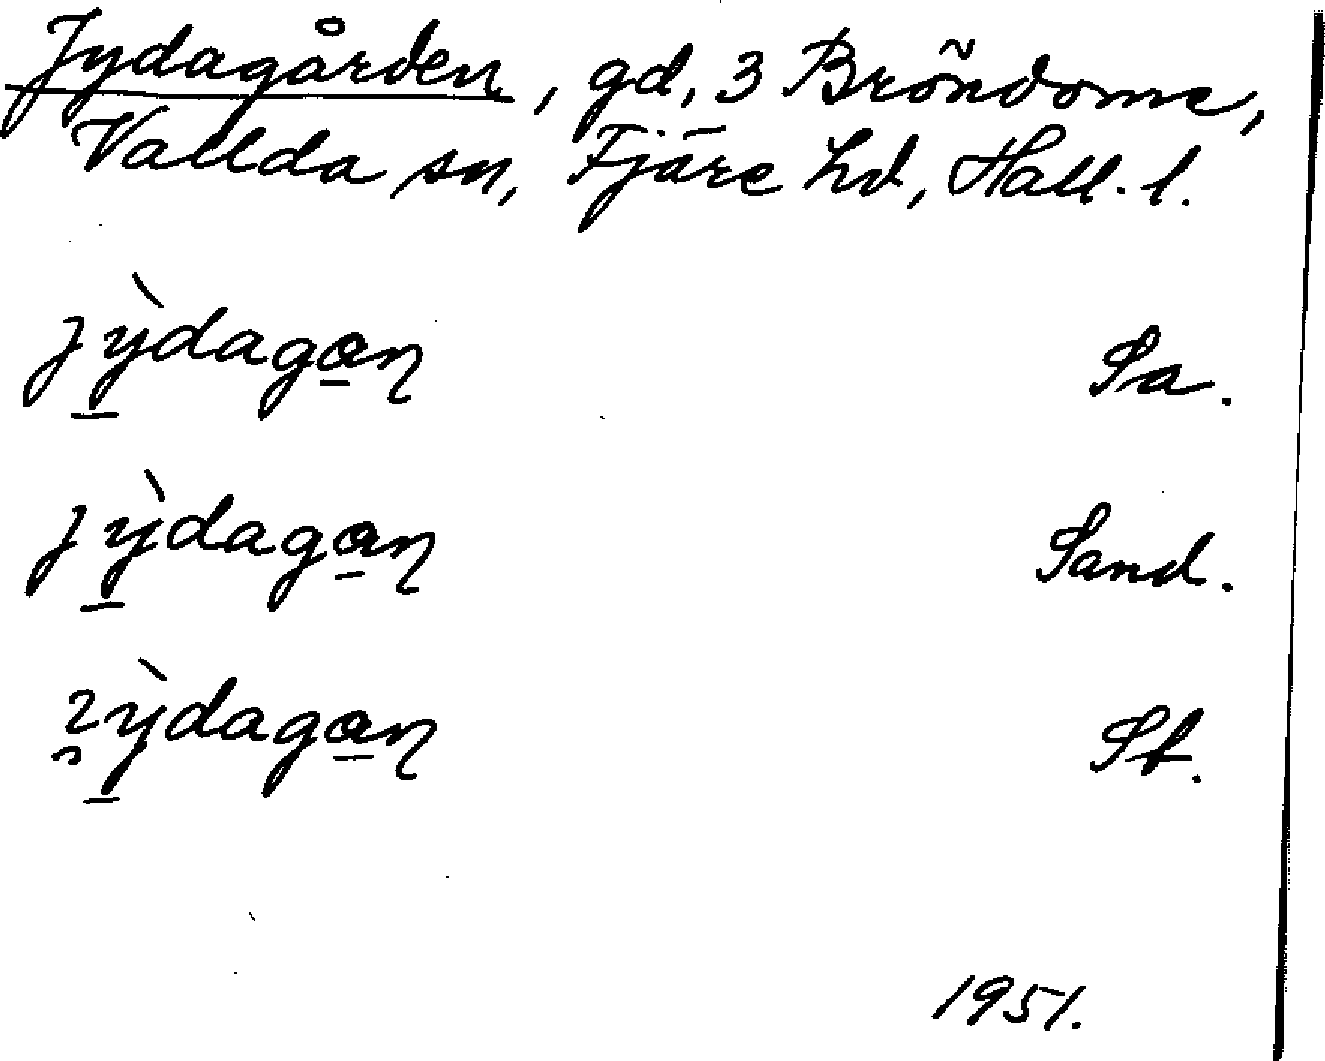 Jydagården, gd, 3 Bröndome,
Vallda sn, Fjäre hd, Hall. l.
jỳ̱daga̱ɳ Sa.
jỳ̱daga̱ɳ Sand.
ỳ̱daga̱ɳ St.
1951.